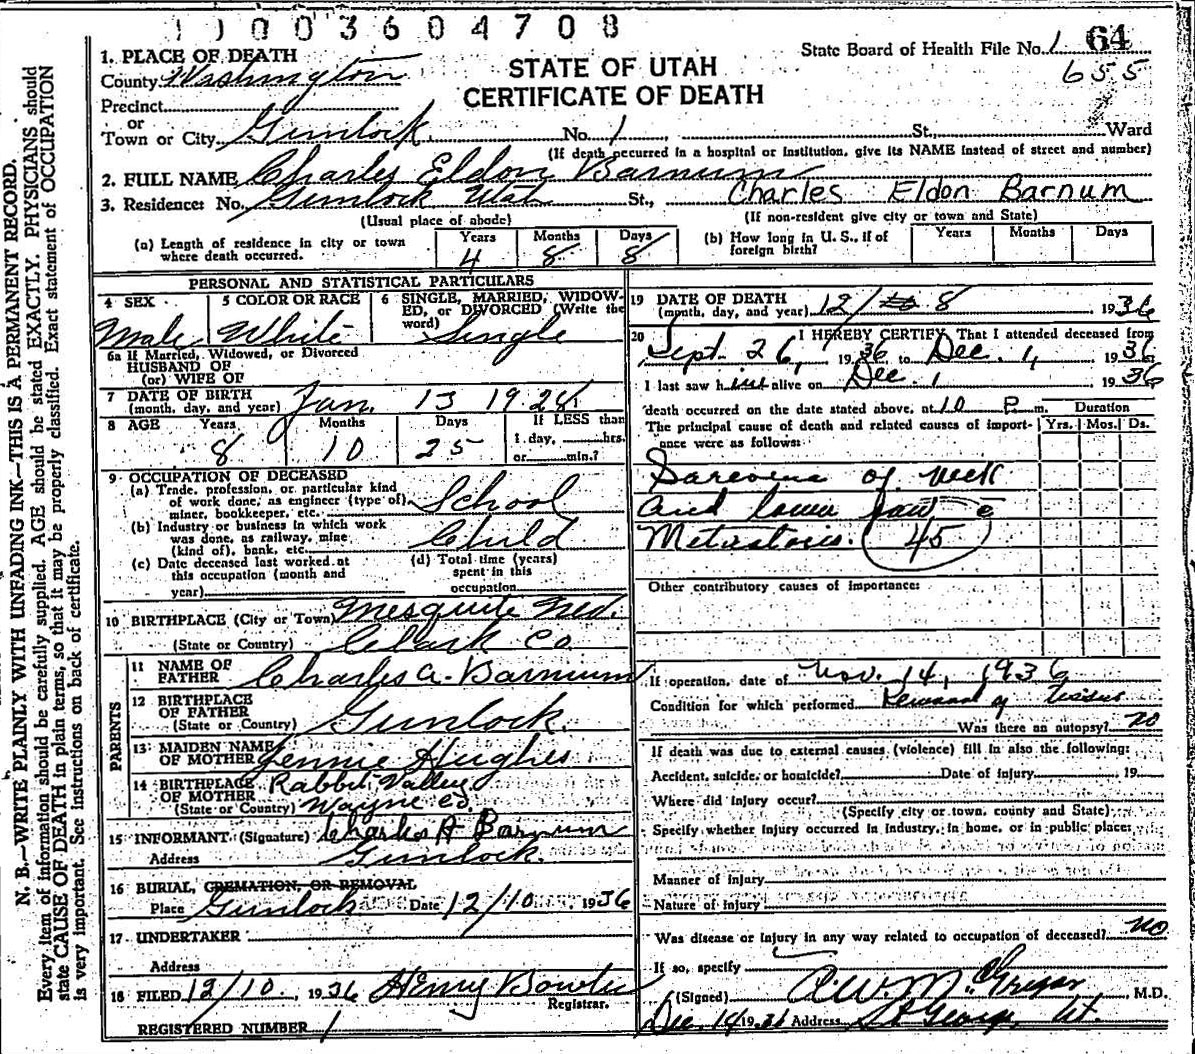 1 0 0 3 6 0 4 7 0 8
State Board of Health File No. 1 64
655
STATE OF UTAH
CERTIFICATE OF DEATH
1. PLACE OF DEATH
County Washington
Precinct
or
Town or City Gunlock No. 1 St., Ward
(If death occurred in a hospital or institution, give its NAME instead of street and number)
2. FULL NAME Charles Eldon Barnum
3. Residence: No. Gunlock Utah St., Charles Eldon Barnum
(Usual place of abode) (If non-resident give city or town and State)
(a) Length of residence in city or town where death occurred. Years 4 Months 8 Days 8
(b) How long in U. S., if of foreign birth? Years Months Days
PERSONAL AND STATISTICAL PARTICULARS
4 SEX Male
5 COLOR OR RACE White
6 SINGLE, MARRIED, WIDOWED, OR DIVORCED (Write the word) Single
6a If Married, Widowed, or Divorced
HUSBAND OF
(or) WIFE OF
7 DATE OF BIRTH
(month, day, and year) Jan. 13 1928
8 AGE Years 8 Months 10 Days 25 If LESS than
1 day, hrs.
or min.?
9 OCCUPATION OF DECEASED
(a) Trade, profession, or particular kind
of work done, as engineer (type of)
miner, bookkeeper, etc. School
(b) Industry or business in which work
was done, as railway, mine
(kind of), bank, etc. Child
(c) Date deceased last worked at
this occupation (month and
year)
(d) Total time (years)
spent in this
occupation
10 BIRTHPLACE (City or Town) Mesquite Ned.
(State or Country) Clark Co
PARENTS
11 NAME OF
FATHER Charles A. Barnum
12 BIRTHPLACE
OF FATHER
(State or Country) Gunlock.
13 MAIDEN NAME
OF MOTHER Jennie Hughes
14 BIRTHPLACE
OF MOTHER
(State or Country) Rabbit Valley
Wayne co.
15 INFORMANT (Signature) Charles A Barnum
Address Gunlock.
16 BURIAL, CREMATION, OR REMOVAL
Place Gunlock Date 12/10 1936
17 UNDERTAKER
Address
18 FILED 12/10, 1936 Henry Bowler
Registrar.
REGISTERED NUMBER 1
19 DATE OF DEATH
(month, day, and year) 12/ 8 1936
20 I HEREBY CERTIFY, That I attended deceased from
Sept. 26, 1936 to Dec. 1, 1936
I last saw him alive on Dec. 1 1936
death occurred on the date stated above, at 10 P. m.
The principal cause of death and related causes of importance were as follows:
Duration
Yrs. Mos. Ds.
Sarcoma of neck
and lower jaw
Metastasis. 45
Other contributory causes of importance:
If operation, date of Nov. 14, 1936
Condition for which performed Removal of tissue
Was there an autopsy? no
If death was due to external causes (violence) fill in also the following:
Accident, suicide, or homicide? Date of injury 19
Where did injury occur?
(Specify city or town, county and State)
Specify whether injury occurred in industry, in home, or in public place:
Manner of injury
Nature of injury
Was disease or injury in any way related to occupation of deceased? no
If so, specify
(Signed) A.W. McGregor M.D.
Dec. 14 1936 Address St George, Ut.
N. B.—WRITE PLAINLY WITH UNFADING INK—THIS IS A PERMANENT RECORD.
Every item of information should be carefully supplied. AGE should be stated EXACTLY. PHYSICIANS should
state CAUSE OF DEATH in plain terms, so that it may be properly classified. Exact statement of OCCUPATION
is very important. See instructions on back of certificate.